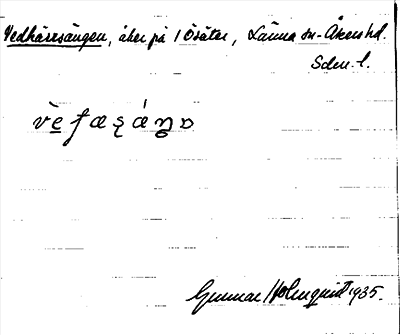 Vedhärsängen, åker på 1 Ösäter, Länna sn. Åkers hd.
Sdm. l.
Gunnar Holmquist 1935.